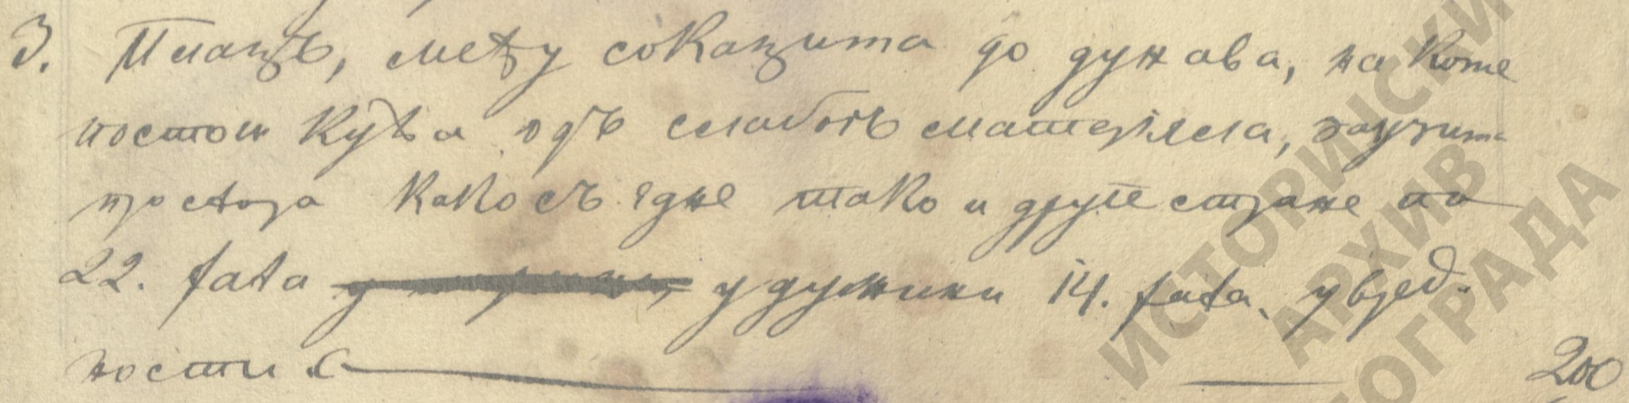 3. Плацъ, међу сокацима до дунава, на коме
постои кућа одъ слабогъ матеріяла, заузима
простора како съ једне тако и друге стране по
22. fata у дужини 14. fata, у вред-
ности
200
ИСТОРИЈСКИ
АРХИВ
БЕОГРАДА